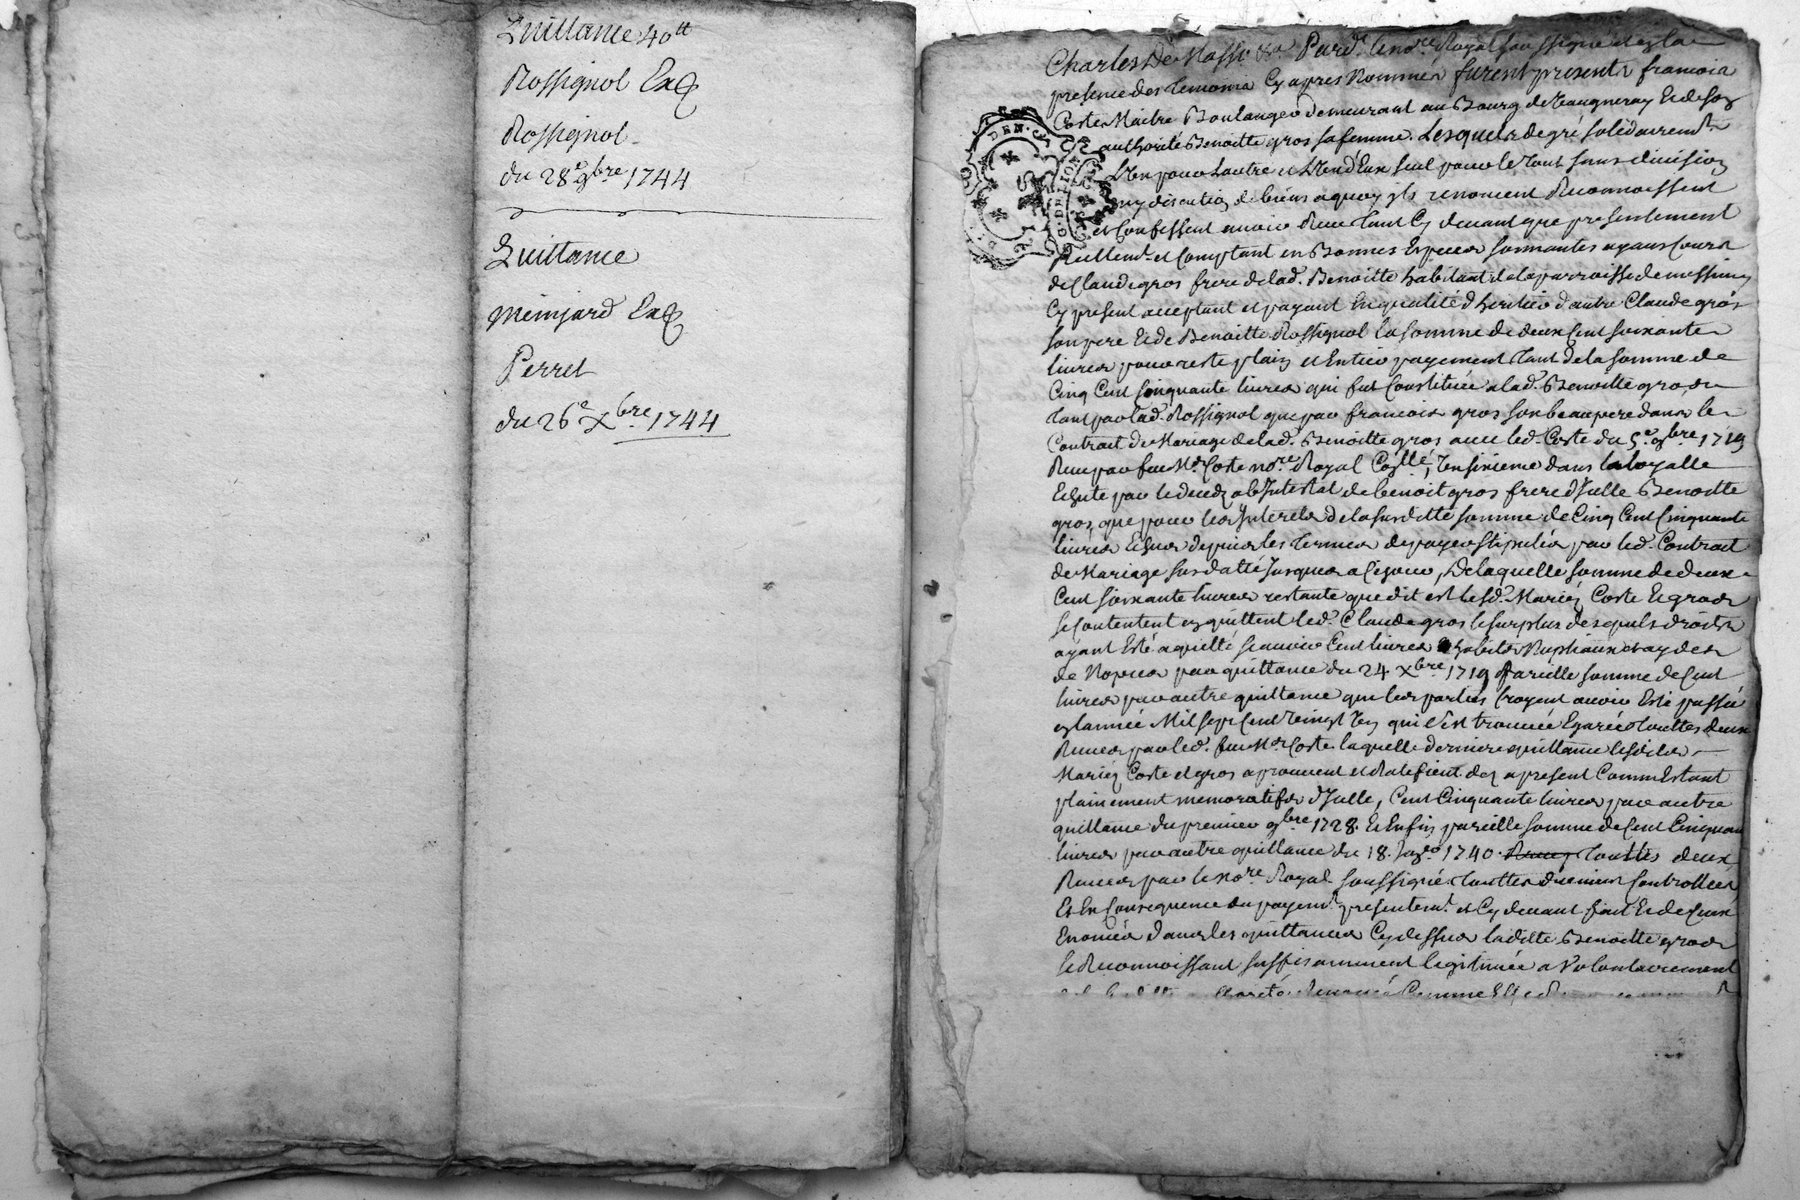 Quittance 40tt
Rossignol Ex
Rossignol
du 28e 9bre 1744
Quittance
Meinjard Ex
Perret
du 26e Xbre 1744
Charles De Masso &a Pard. le nore Royal soussigné et en la
presence des temoins Cy apres Nommés furent presents francois
Coste Maitre Boulanger demeurant au Bourg de Vaugneray Et de son
authorité Benoitte gros sa femme. Lesquels de gré solidairemt
L'un pour Lautre et L'Un d'Eux seul pour le tout sans division
ny discution de biens a quoy ils renoncent Reconnoissent
et Confessent avoir Receu tant Cy devant que presentement
Reellemt et Comptant en Bonnes Especes sonnantes ayans Cours
de Claude gros frere de lad. Benoitte habitant de la parroisse de messimy
Cy present acceptant et payant En qualité d'heritier d'autre Claude gros
son pere Et de Benoitte Rossignol la somme de deux Cent soixante
livres pour reste plain et Entier payement tant de la somme de
Cinq Cent Cinquante livres qui fut Constituée a lad. Benoitte gros
tant par lad. Rossignol que par francois gros son beaupere dans le
Contrat de Mariage de lad. Benoitte gros avec led. Coste du 5e 9bre 1719
Receu par feu Me Coste nore Royal
Echute par le deced ab Intestat de benoit gros frere d'Icelle Benoitte
gros, que pour les Interets de la susditte somme de Cinq Cent Cinquante
livres Echus depuis les termes de payer stipulés par led. Contrat
de Mariage susdatté Jusques a Cejour, De laquelle somme de deux
Cent soixante livres restante que dit est lesd. Mariés Coste Et gros
se Contentent en quittent led. Claude gros le surplus desquels droits
ayant Esté acquitté sçavoir Cent livres habits Nuptiaux et aydes
de Nopces par quittance du 24 Xbre 1719 pareille somme de Cent
livres par autre quittance que les parties Croyent avoir Esté passée
en lannée Mil sept Cent Vingt qui s'est trouvée Egarée touttes deux
Receues par led. feu Me Coste laquelle derniere quittance lesdits
Mariés Coste et gros aprouvent et Ratifient dez a present Comme Estant
plainement memoratifs d'Icelle, Cent Cinquante livres par autre
quittance du premier 9bre 1728. Et Enfin pareille somme de Cent Cinquante
livres par autre quittance du 18. 1740. touttes deux
Receues par le nore Royal soussigné touttes duement Controllées
Et En Consequence du payemt presentemt et Cy devant fait Et de Ceux
Enoncés dans les quittances Cy dessus laditte Benoitte gros
se Reconnoissant suffisamment legitimée a Volontairement